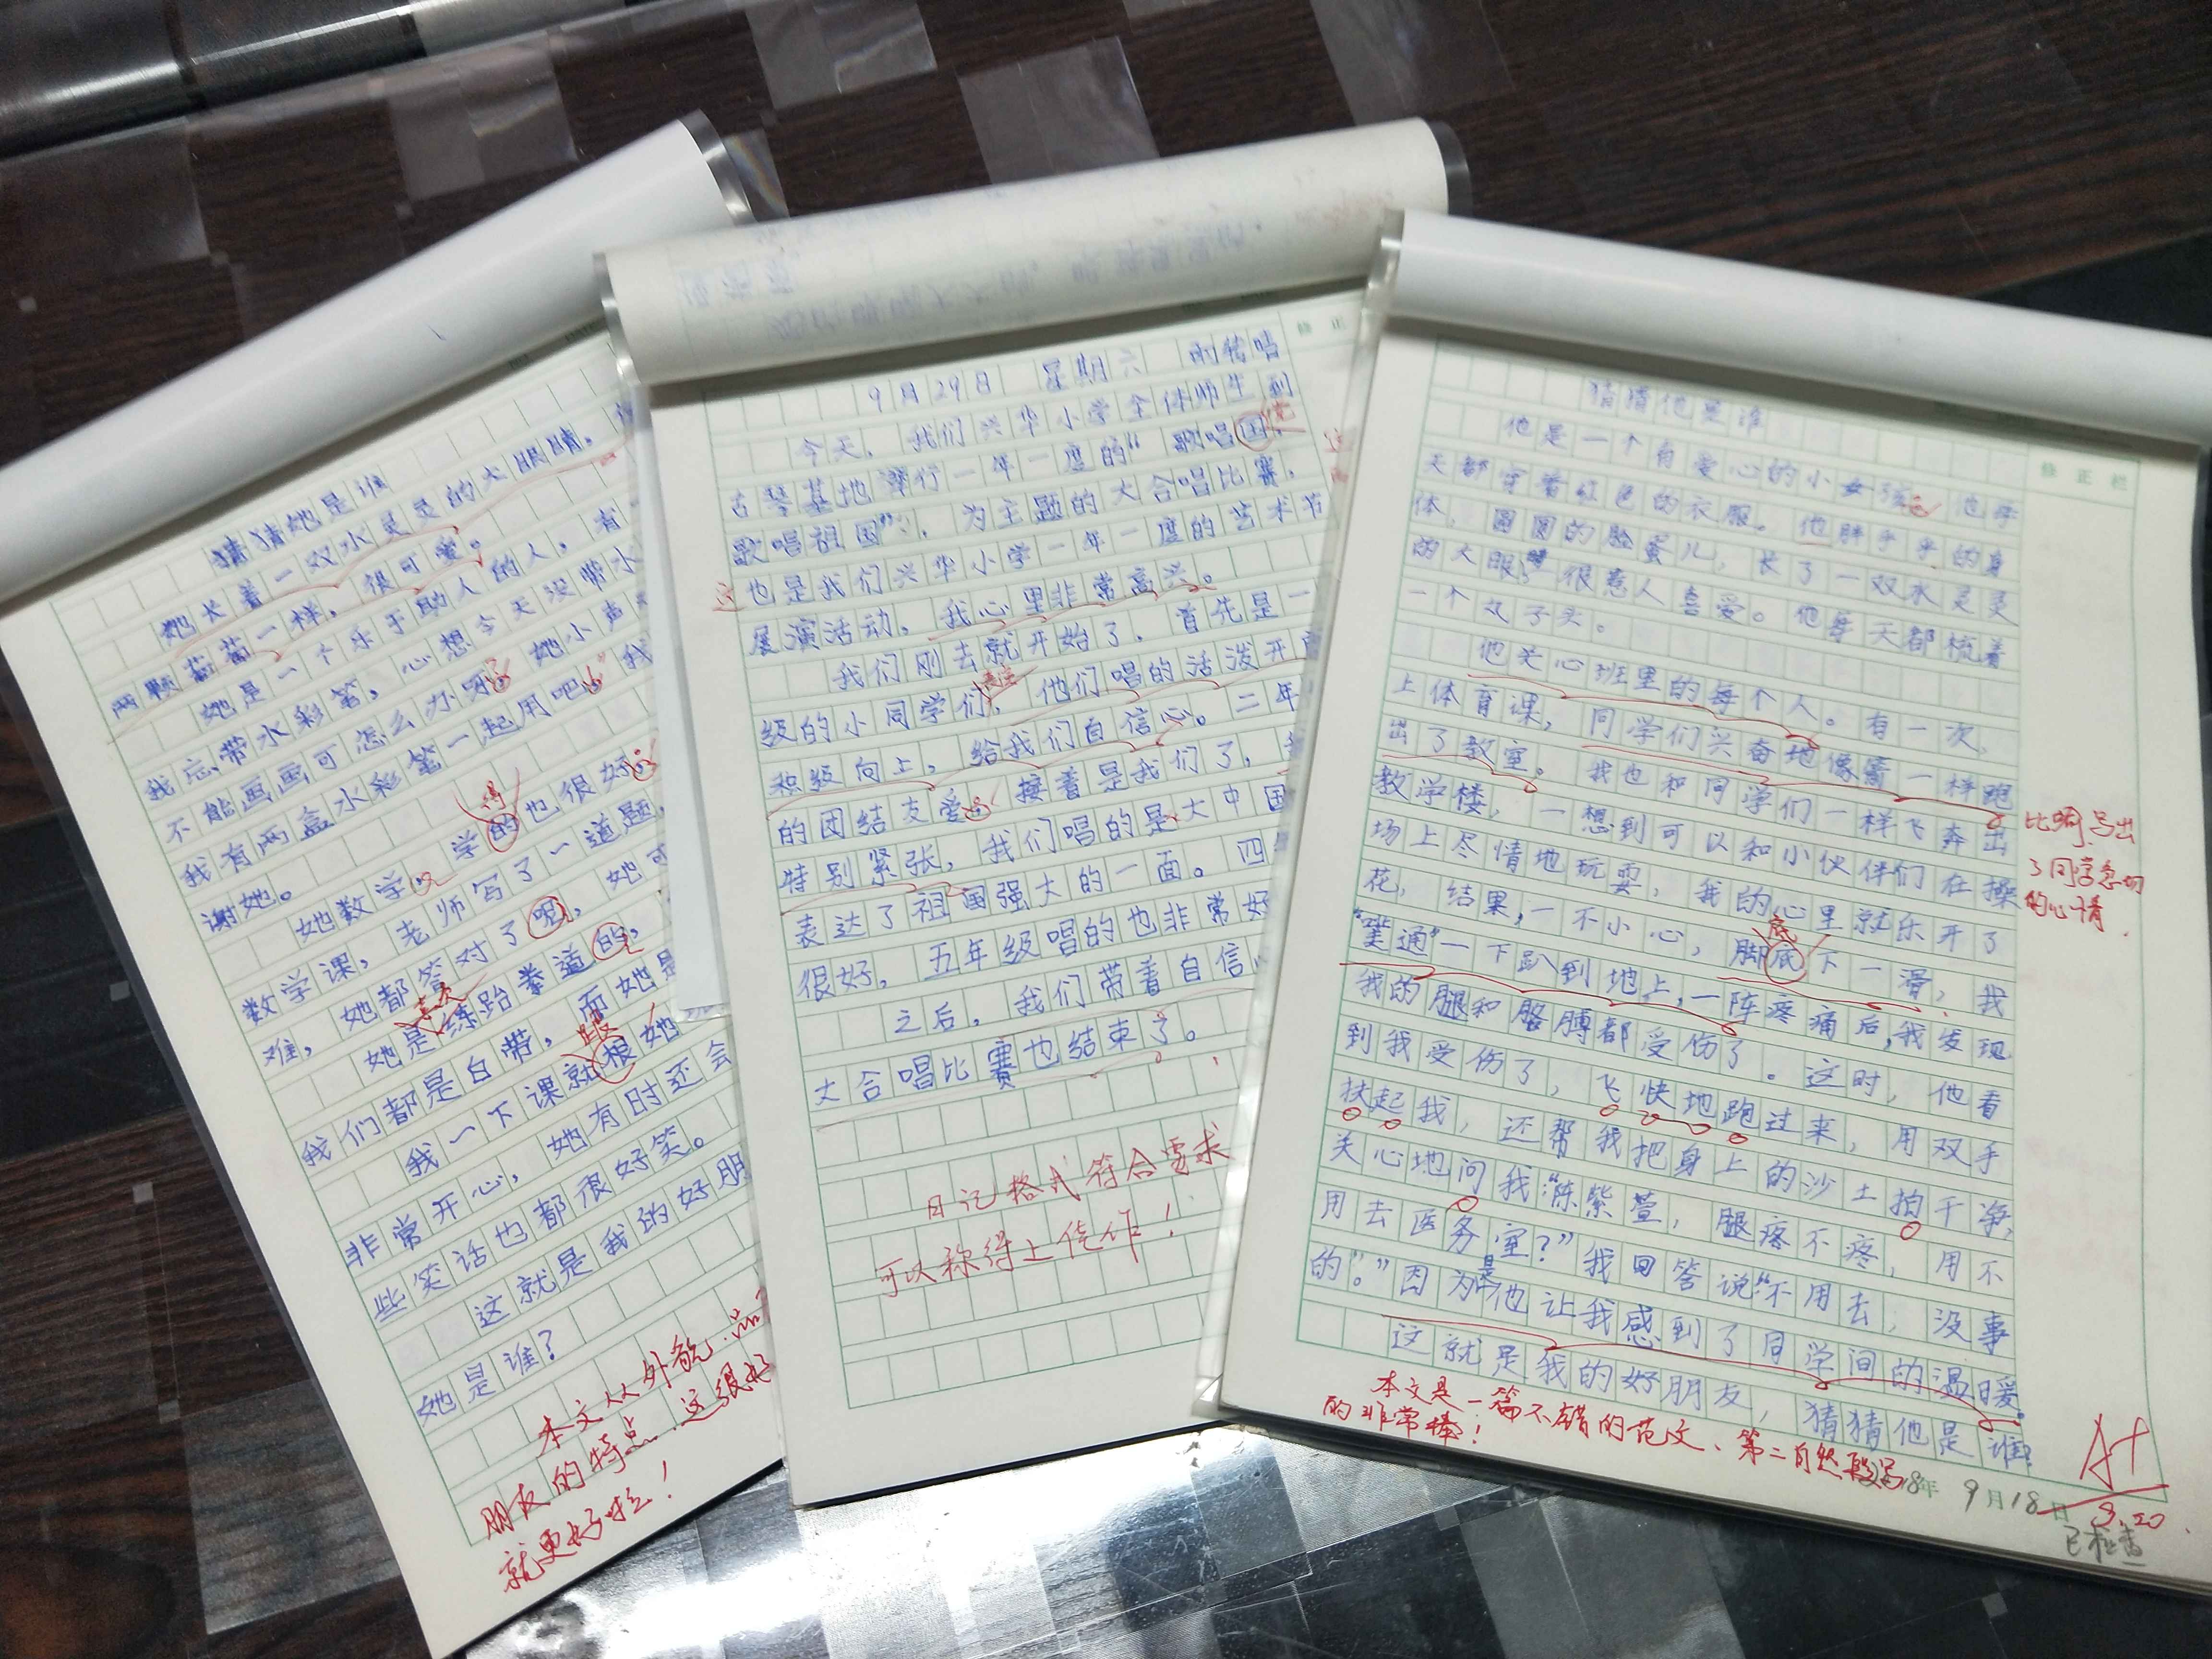 猜猜她是谁
她长着一双水灵灵的大眼睛,
两颗葡萄一样,很可爱。
她是一个乐于助人的人。有
我忘带水彩笔,心想今天没带水
不能画画可怎么办呀 她小声
我有两盒水彩笔一起用吧 我
谢她。
她数学 学的也很好
得
数学课,老师写了一道题,
难,她都答对了呢,她可
她是练跆拳道的,
我们都是白带,而她是
我一下课就根她
跟
非常开心,她有时还会
些笑话也都很好笑。
这就是我的好朋
她是谁?
本文从外貌
朋友的特点 这很好
就更好啦!
9月29日 星期六
今天,我们兴华小学全体师生到
古琴基地举行一年一度的“歌唱
歌唱祖国”,为主题的大合唱比赛,
这也是我们兴华小学一年一度的艺术节
展演活动,我心里非常高兴。
我们刚去就开始了,首先是一
级的小同学们,他们唱的活泼开
积级向上,给我们自信心。二年
的团结支爱 接着是我们了,
特别紧张,我们唱的是大中国
表达了祖国强大的一面。四
很好,五年级唱的也非常好
之后,我们带着自信
大合唱比赛也结束了。
日记格式符合要求
可以称得上佳作!
修正
猜猜他是谁
修正栏
他是一个有爱心的小女孩 他每
天都穿着红色的衣服。他胖乎乎的身
体,圆圆的脸蛋儿,长了一双水灵灵
的大眼睛 很惹人喜爱。他每天都梳着
一个丸子头。
他关心班里的每个人。有一次,
上体育课,同学们兴奋地像箭一样跑
出了教室。我也和同学们一样飞奔出
教学楼,一想到可以和小伙伴们在操
场上尽情地玩耍,我的心里就乐开了
花,结果,一不小心,脚底下一滑,我
底
通”一下趴到地上,一阵疼痛后,我发现
我的腿和胳膊都受伤了。这时,他看
到我受伤了,飞快地跑过来,用双手
扶起我,还帮我把身上的沙土拍干净,
关心地问我“陈紫萱,腿疼不疼,用不
用去医务室?”我回答说“不用去,没事
的。”因为是他让我感到了同学间的温暖。
这就是我的好朋友,猜猜他是谁?
比喻写出
了同学急切
的心情
本文是一篇不错的范文、第二自然段写
的非常棒!
18年 9月18日
A+
9.20
已检查